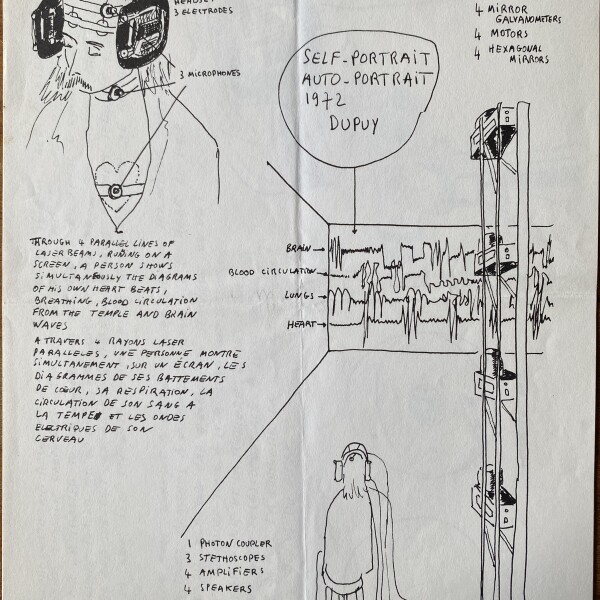 HEADSET
3 ELECTRODES
3 MICROPHONES
4 MIRROR
GALVANOMETERS
4 MOTORS
4 HEXAGONAL
MIRRORS
SELF-PORTRAIT
AUTO-PORTRAIT
1972
DUPUY
BRAIN
BLOOD CIRCULATION
LUNGS
HEART
THROUGH 4 PARALLEL LINES OF
LASER BEAMS, RUNING ON A
SCREEN, A PERSON SHOWS
SIMULTANEOUSLY THE DIAGRAMS
OF HIS OWN HEART BEATS,
BREATHING, BLOOD CIRCULATION
FROM THE TEMPLE AND BRAIN
WAVES
A TRAVERS 4 RAYONS LASER
PARALLELES, UNE PERSONNE MONTRE
SIMULTANEMENT, SUR UN ÉCRAN, LES
DIAGRAMMES DE SES BATTEMENTS
DE CŒUR, SA RESPIRATION, LA
CIRCULATION DE SON SANG A
LA TEMPE ET LES ONDES
ELECTRIQUES DE SON
CERVEAU
1 PHOTON COUPLER
3 STETHOSCOPES
4 AMPLIFIERS
4 SPEAKERS